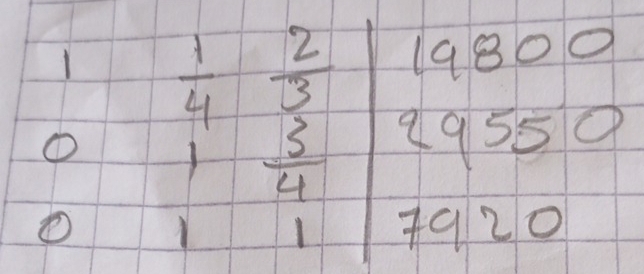 1 1/4 2/3 | 19800
0 1 3/4 | 29550
0 1 1 | 7920